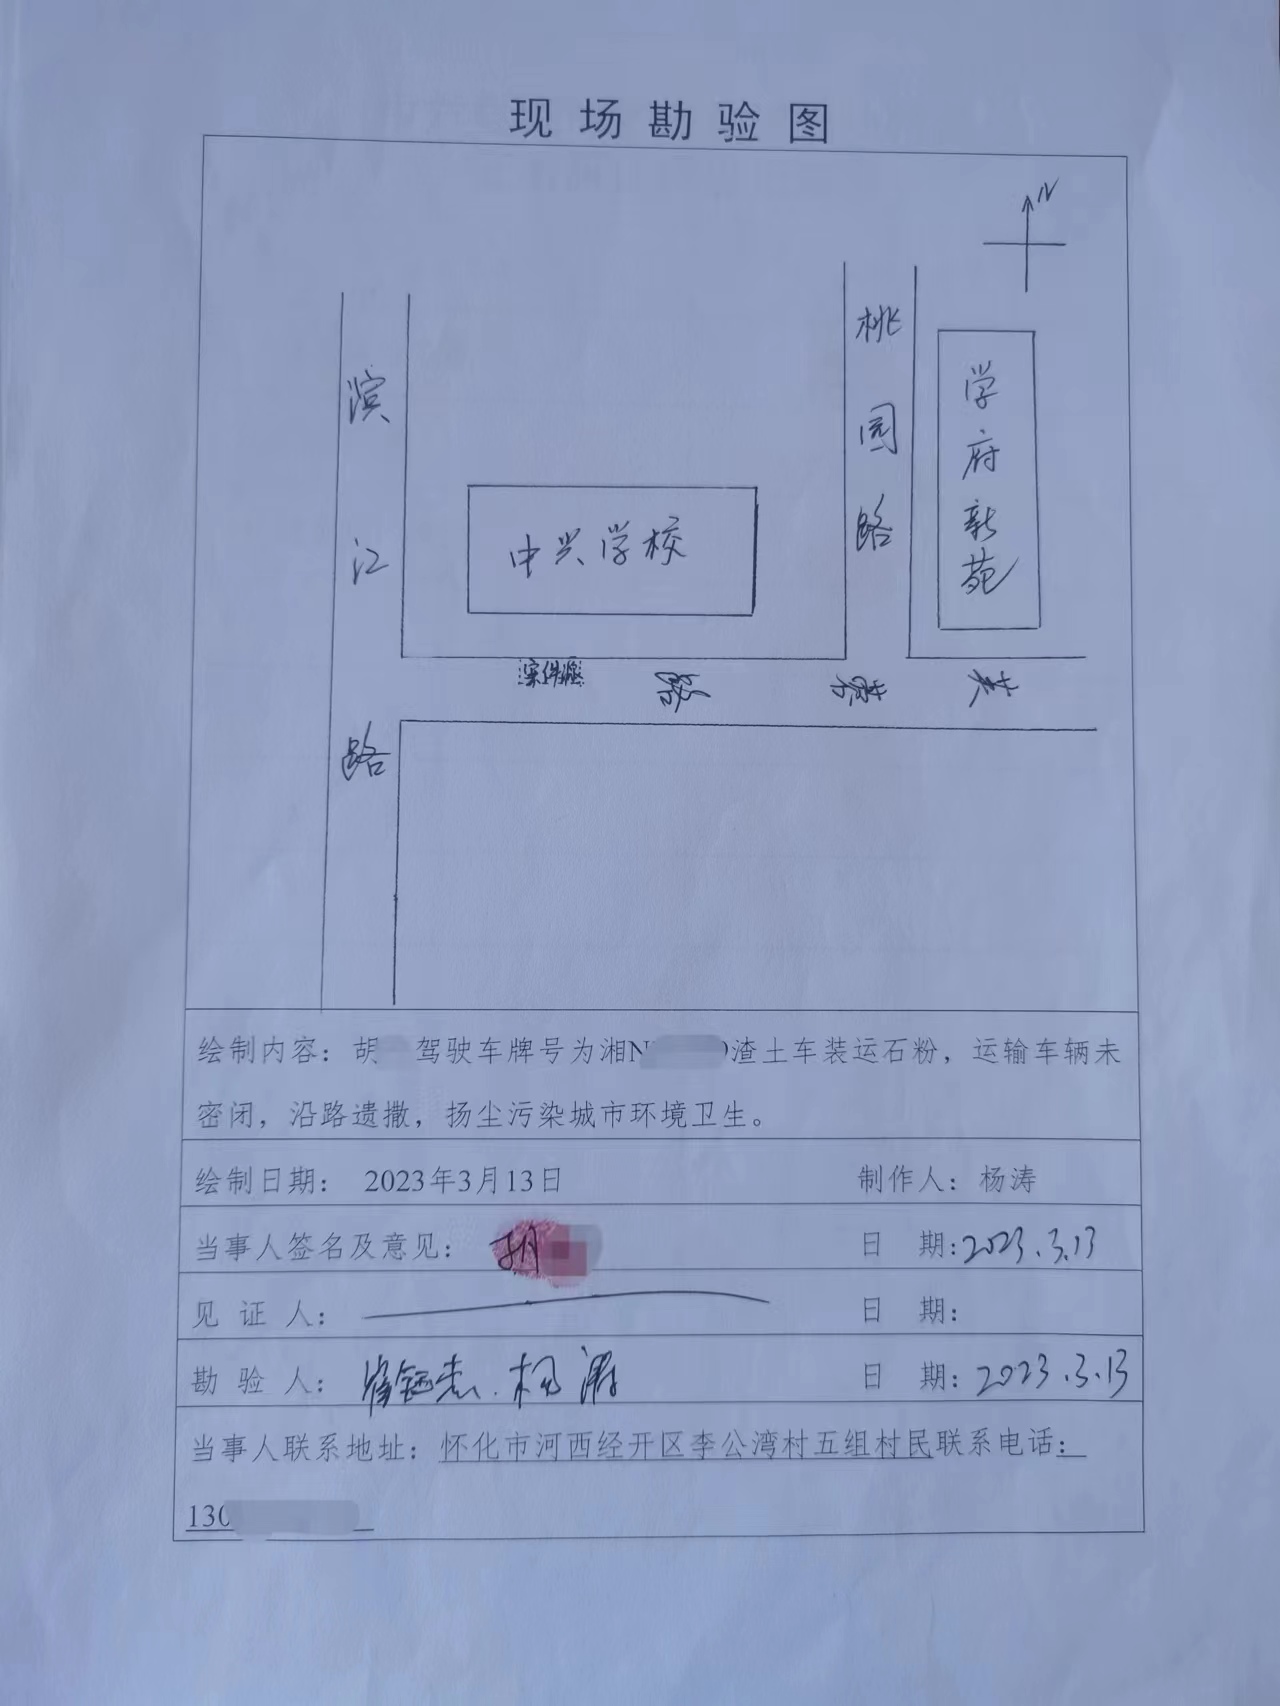 现场勘验图
N
滨江路
桃园路
学府新苑
中兴学校
路
绘制内容：胡 驾驶车牌号为湘N 渣土车装运石粉，运输车辆未
密闭，沿路遗撒，扬尘污染城市环境卫生。
绘制日期： 2023年3月13日 制作人：杨涛
当事人签名及意见： 胡 日 期：2023.3.13
见 证 人： 日 期：
勘 验 人： 杨涛 日 期：2023.3.13
当事人联系地址：怀化市河西经开区李公湾村五组村民联系电话：
130